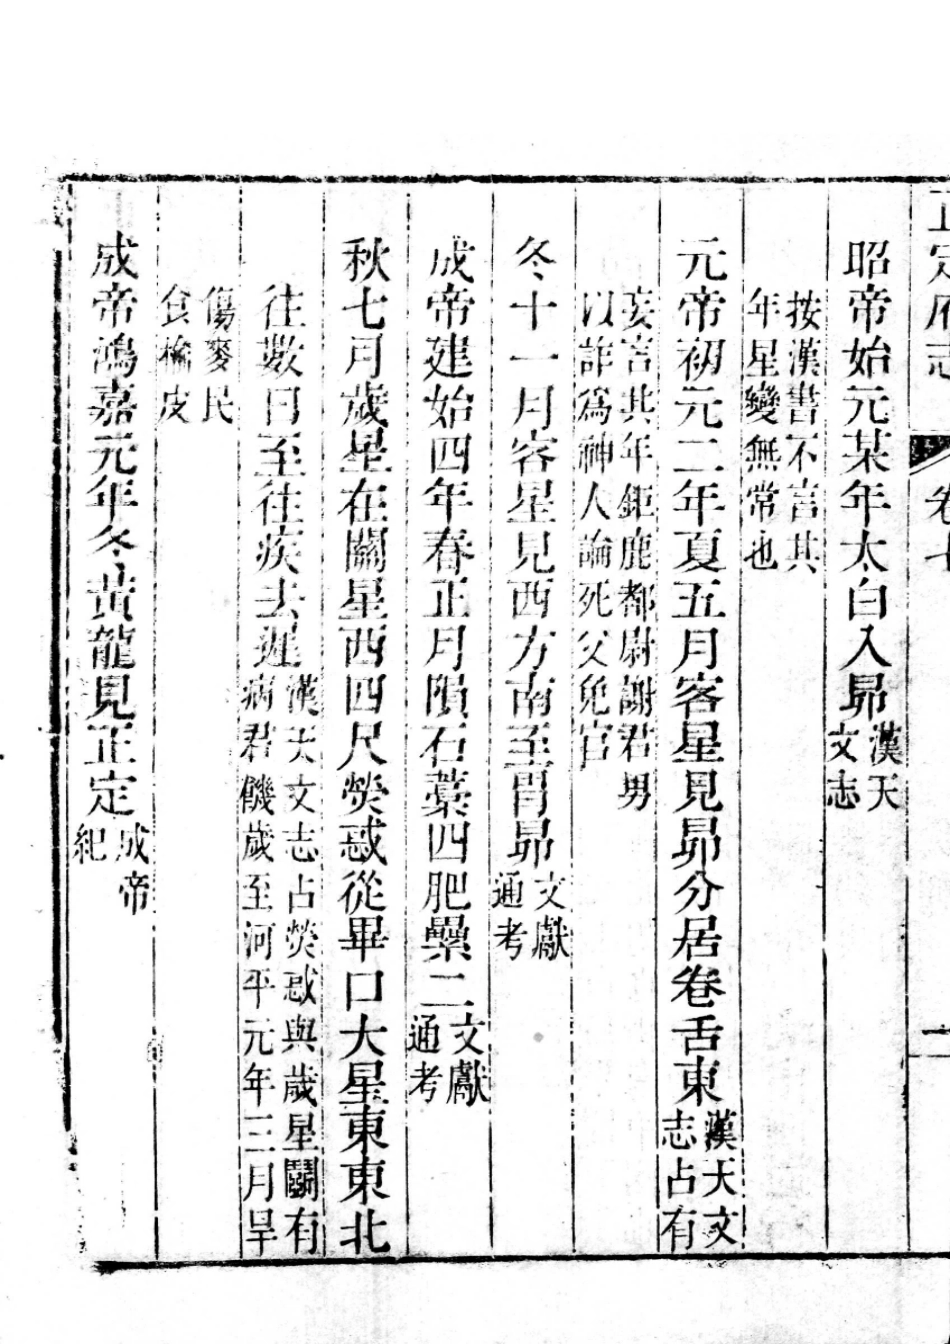 正定府志 卷
昭帝始元某年太白入昴漢天文志
按漢書不言其
年星變無常也
元帝初元二年夏五月客星見昴分居卷舌東漢天文志占有
妄言其年鉅鹿都尉謝君男
以詐爲神人論死父免官
冬十一月客星見西方南至胃昴文獻通考
成帝建始四年春正月隕石藁四肥壘二文獻通考
秋七月歲星在關星西四尺熒惑從畢口大星東東北
往數日至往疾去遲漢天文志占熒惑與歲星鬭有病君饑歲至河平元年三月旱
傷麥民
食榆皮
成帝鴻嘉元年冬黃龍見正定成帝紀